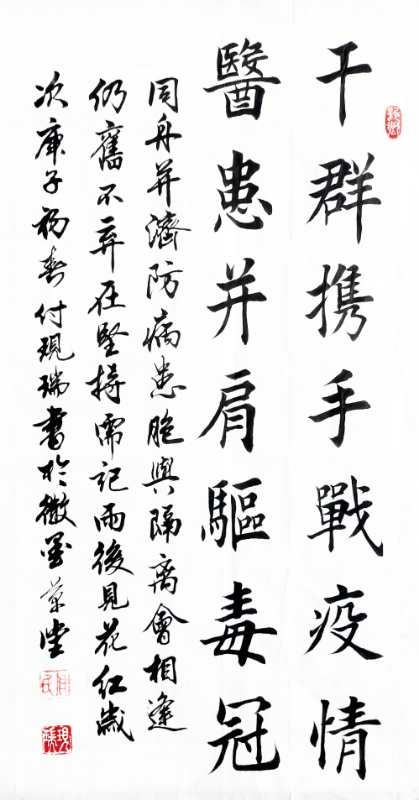 干群携手戰疫情
醫患并肩驅毒冠
同舟并濟防病患胞與隔离會相逢
仍舊不弃在堅持需記雨後見花红歲
次庚子初春付現瑞書於徽墨草堂